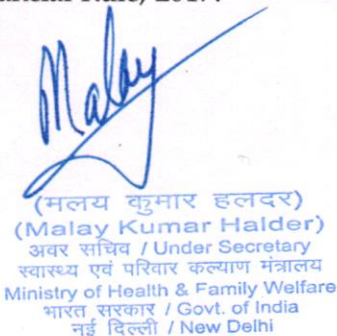 Rule, 2017.
Malay
(मलय कुमार हलदर)
(Malay Kumar Halder)
अवर सचिव / Under Secretary
स्वास्थ्य एवं परिवार कल्याण मंत्रालय
Ministry of Health & Family Welfare
भारत सरकार / Govt. of India
नई दिल्ली / New Delhi